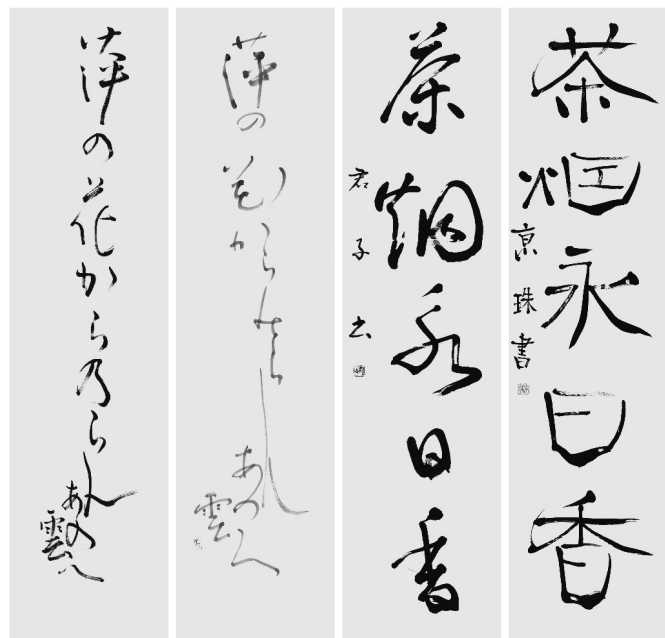 茶烟永日香
亰珠書
茶烟永日香
君子書
萍の花からのらん
あの雲へ
萍の花から乃らん
あの雲へ